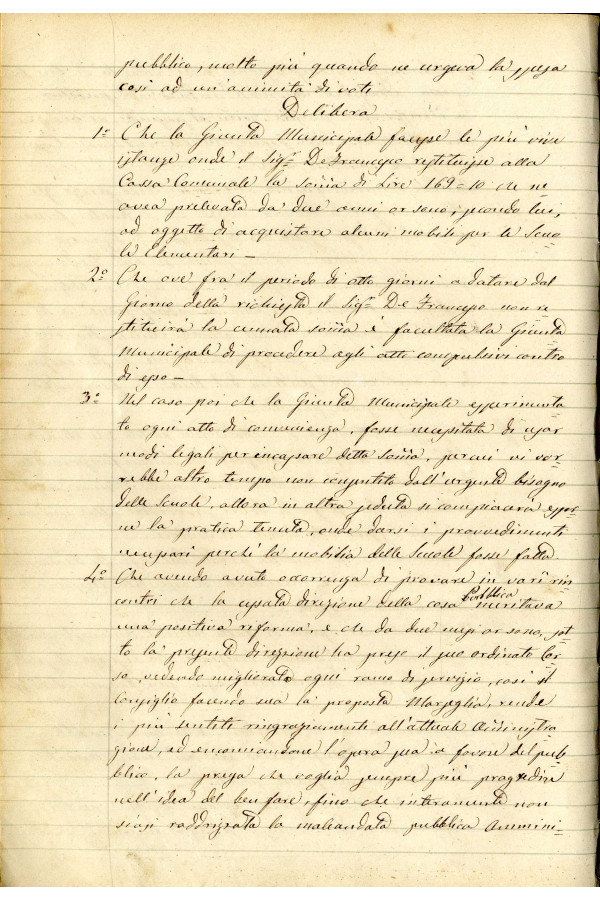 pubblico, molto più quando ne urgeva la spesa
così ad un'animità di voti
Delibera
1º Che la Giunta Municipale facesse le più vive
istanze onde il Sigr. De Francesco restituisse alla
Cassa Comunale la somma di Lire 169=10 che ne
avea prelevata da due anni or sono, secondo lui,
ad oggetto di acquistare alcuni mobili per le Scuo
le Elementari —
2º Che ove fra il periodo di otto giorni a datare dal
Giorno della richiesta il Sigr. De Francesco non re
stituirà la cennata somma è facultata la Giunta
Municipale di procedere agli atti compulsivi contro
di esso —
3º Nel caso poi che la Giunta Municipale esperimenta
to ogni atto di convenienza, fosse necessitata di usar
modi legali per incassare detta somma, perciò vi vor
rebbe altro tempo non consentito dall'urgente bisogno
delle Scuole, allora in altra seduta si compiacerà espor
ne la pratica tenuta, onde darsi i provvedimenti
necessari perché la mobilia delle Scuole fosse fatta
4º Che avendo avuto occorrenza di provare in varî rin
contri che la cessata direzione della cosa Pubblica meritava
una positiva riforma, e che da due mesi or sono, sot
to la presente direzione ha preso il suo ordinato Cor
so, vedendo migliorato ogni ramo di servizio, così il
Consiglio facendo sua la proposta Marseglia, rende
i più sentiti ringraziamenti all'attuale Amministra
zione, ed encomiandone l'opera sua a favore del pub
blico, la prega che voglia sempre più progredire
nell'idea del ben fare, fino che interamente non
siasi raddrizzata la malandata pubblica Ammini-